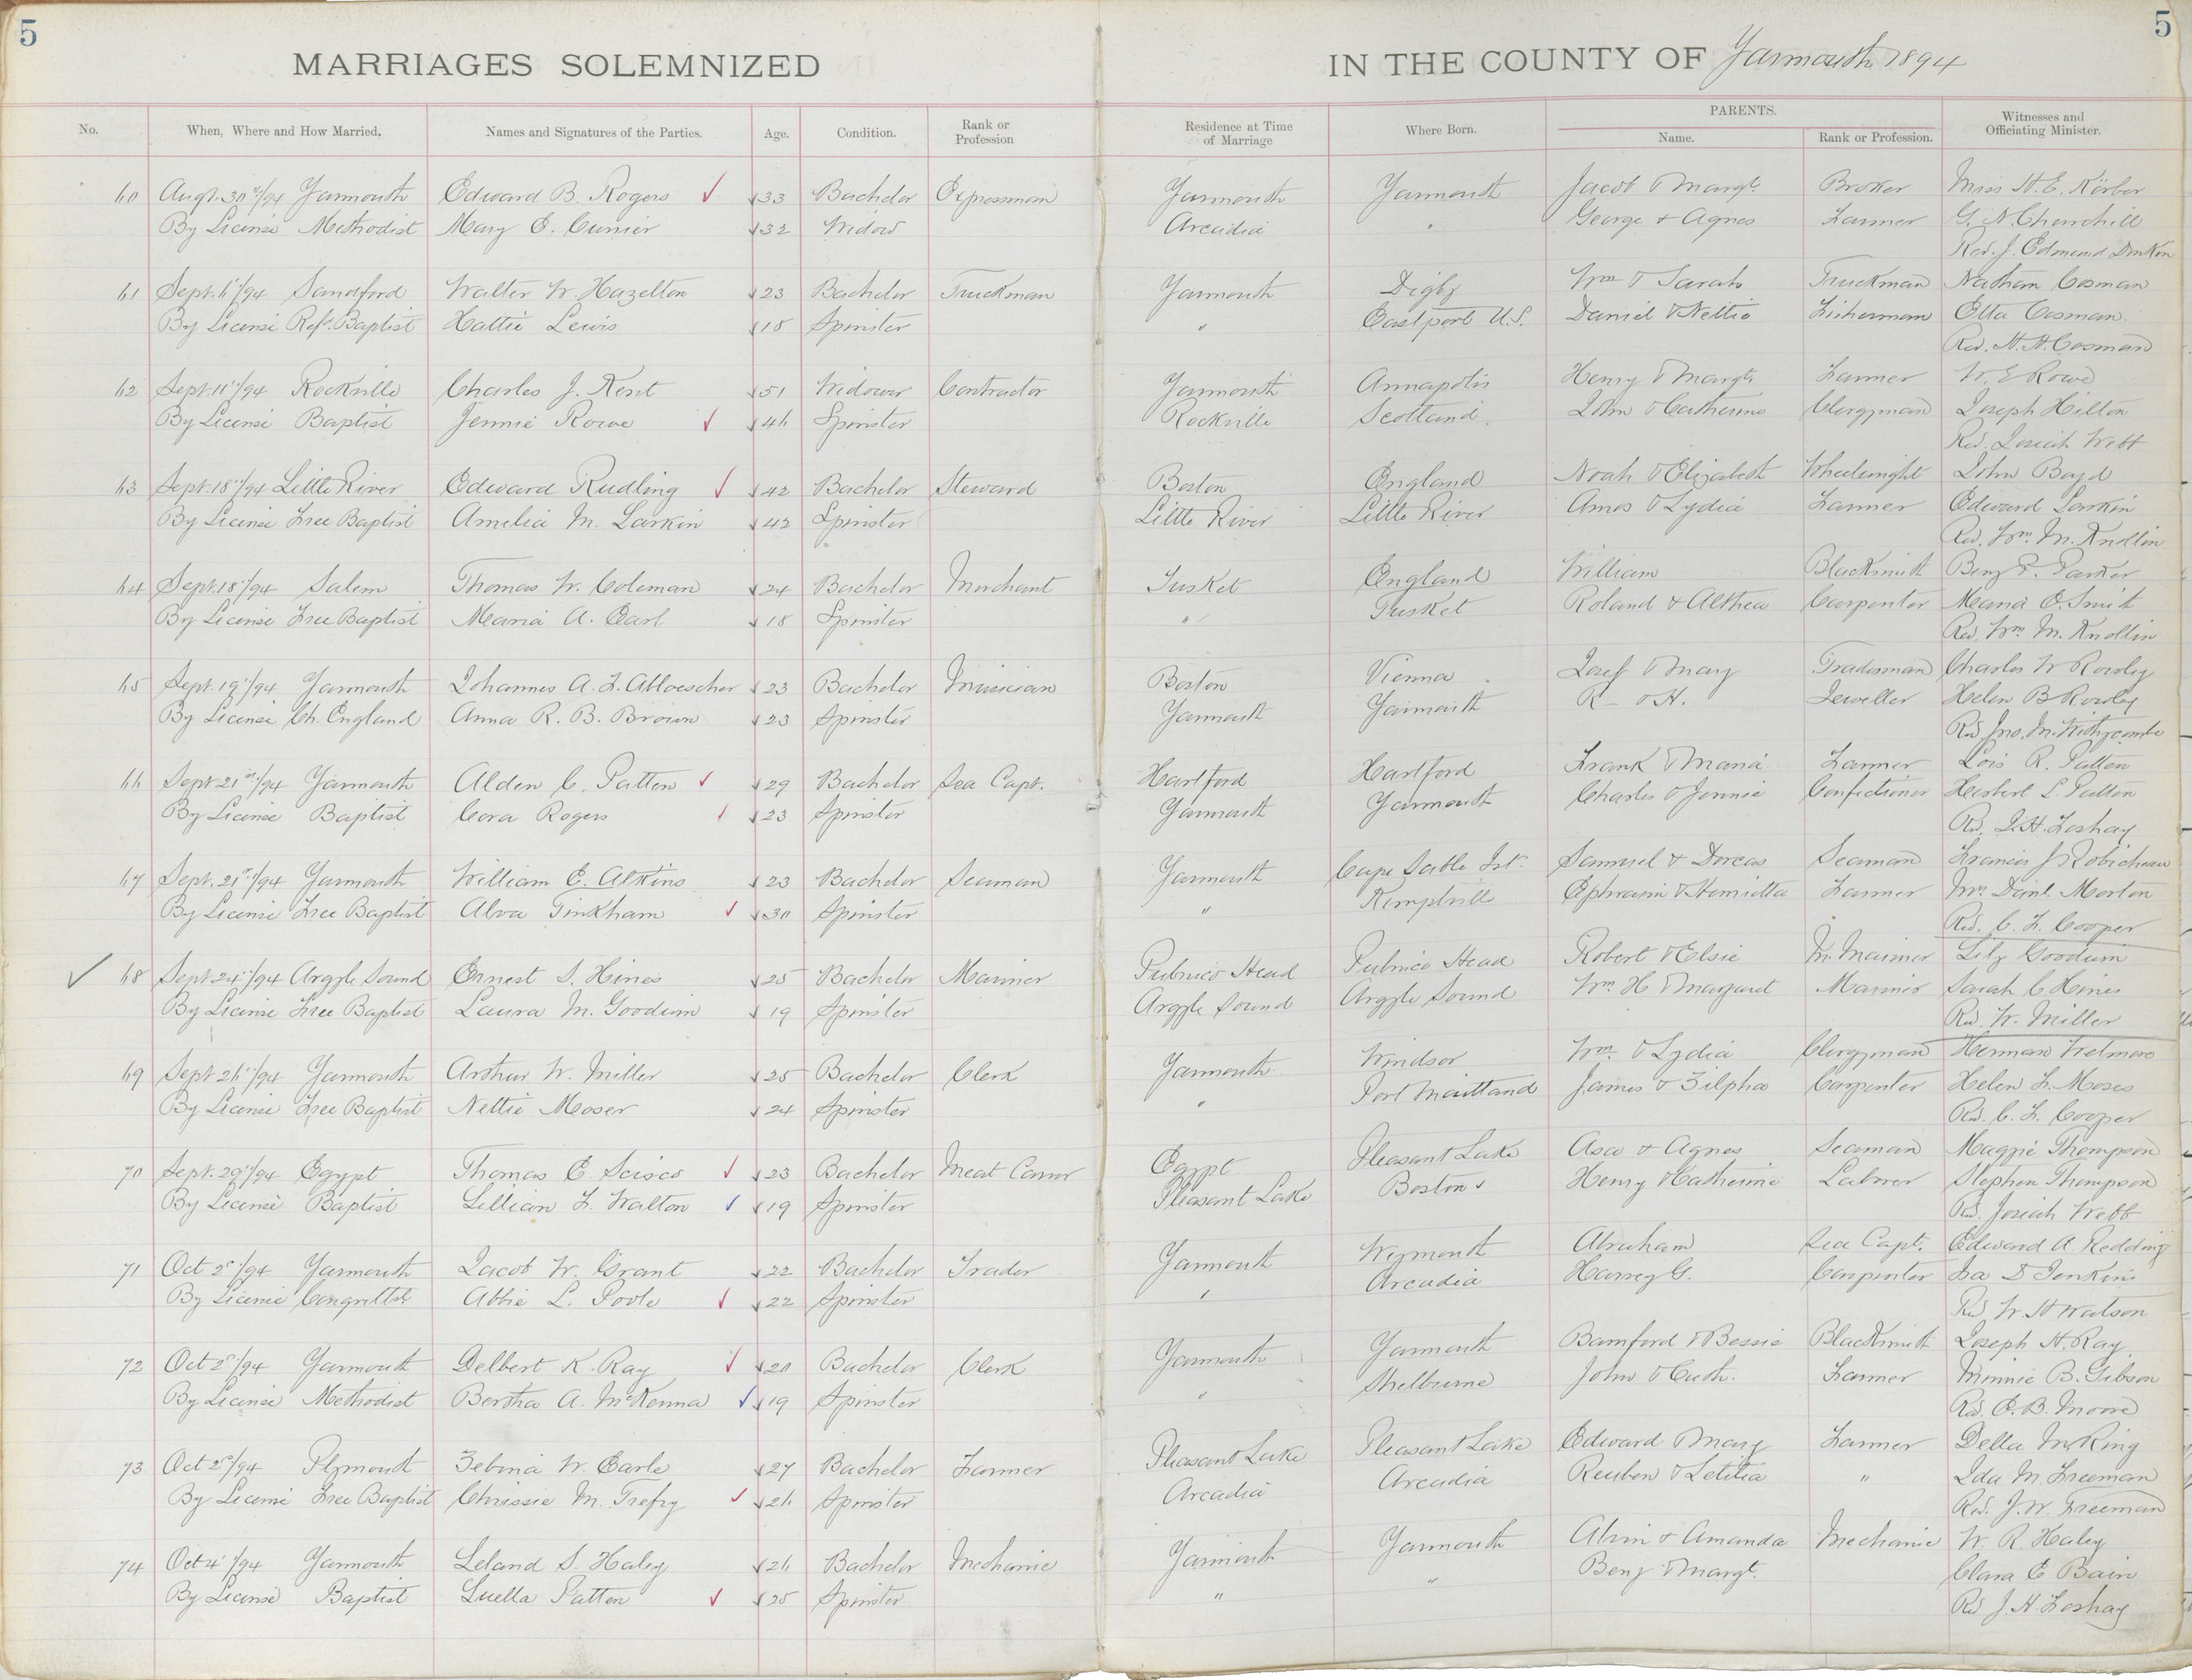 5
5
MARRIAGES SOLEMNIZED IN THE COUNTY OF Yarmouth 1894
No. When, Where and How Married. Names and Signatures of the Parties. Age. Condition. Rank or Profession Residence at Time of Marriage Where Born. PARENTS. Name. Rank or Profession. Witnesses and Officiating Minister.
60 Augt. 30th/94 Yarmouth Edward B. Rogers 33 Bachelor Expressman Yarmouth Yarmouth Jacob & Margt. Broker Miss H. E. Kirber
By License Methodist Mary E. Currier 32 Widow Arcadia " George & Agnes Farmer G. N. Churchill
Rev. J. Edmund Donkin
61 Sept. 6"/94 Sandford Walter W. Hazelton 23 Bachelor Truckman Yarmouth Digby Wm & Sarah Truckman Nathan Cosman
By License Refd. Baptist Hattie Lewis 18 Spinster " Eastport U.S. Daniel & Nettie Fisherman Etta Cosman
Rev. H. H. Cosman
62 Sept. 11"/94 Rockville Charles J. Kent 51 Widower Contractor Yarmouth Annapolis Henry & Margt. Farmer W. E Rowe
By License Baptist Jennie Rowe 46 Spinster Rockville Scotland. John & Catherine Clergyman Joseph Hilton
Rev. Josiah Webb
63 Sept. 18"/94 Little River Edward Rudling 42 Bachelor Steward Boston England Noah & Elizabeth Wheelwright John Boyd
By License Free Baptist Amelia M. Larkin 42 Spinster Little River Little River Amos & Lydia Farmer Edward Larkin
Rev. Wm. M. Knollin
64 Sept. 18"/94 Salem Thomas W. Coleman 24 Bachelor Merchant Tusket England William Blacksmith Benj F. Parker
By License Free Baptist Maria A. Earl 18 Spinster " Tusket Roland & Althea Carpenter Maria E. Smith
Rev. Wm. M. Knollin
65 Sept. 19"/94 Yarmouth Johannes A. F. 23 Bachelor Musician Boston Vienna Josef & Mary Tradesman Charles W Rowley
By License Ch. England Anna R. B. Brown 23 Spinster Yarmouth Yarmouth R - & H. Jeweller Helen B Rowley
Rev Jno. M. Withycombe
66 Sept 21st/94 Yarmouth Alden C. Patten 29 Bachelor Sea Capt. Hartford Hartford Frank & Maria Farmer Lois R. Patten
By License Baptist Cora Rogers 23 Spinster Yarmouth Yarmouth Charles & Jennie Confectioner Herbert L Patten
Rev. J. H. Foshay
67 Sept. 21st/94 Yarmouth William E. Atkins 23 Bachelor Seaman Yarmouth Cape Sable Isl. Samuel & Dorcas Seaman Francis J. Robicheau
By License Free Baptist Alva Tinkham 30 Spinster " Kemptville Ephraim & Henrietta Farmer Mrs Danl. Morton
Rev. C. F. Cooper
68 Sept 24"/94 Argyle Sound Ernest S. Hines 25 Bachelor Mariner Pubnico Head Pubnico Head Robert & Elsie M. Mariner Lily Goodwin
By License Free Baptist Laura M. Goodwin 19 Spinster Argyle Sound Argyle Sound Wm H & Margaret Mariner Sarah C Hines
Rev. W. Miller
69 Sept 26"/94 Yarmouth Arthur W. Miller 25 Bachelor Clerk Yarmouth Windsor Wm. & Lydia Clergyman Herman Wetmore
By License Free Baptist Nettie Moser 24 Spinster " Port Maitland James & Zilpha Carpenter Helen F. Moses
Rev. C. F. Cooper
70 Sept. 29"/94 Egypt Thomas E. Scisco 23 Bachelor Meat Canner Egypt Pleasant Lake Asa & Agnes Seaman Maggie Thompson
By License Baptist Lillian F. Walton 19 Spinster Pleasant Lake Boston Henry & Catherine Laborer Stephen Thompson
Rev. Josiah Webb
71 Oct 2"/94 Yarmouth Jacob W. Grant 22 Bachelor Trader Yarmouth Weymouth Abraham Sea Capt. Edward A. Redding
By License Congretlst. Abbie L. Poole 22 Spinster " Arcadia Harvey G. Carpenter Isa D Jenkins
Rev W. H Watson
72 Oct 2"/94 Yarmouth Delbert K. Ray 20 Bachelor Clerk Yarmouth Yarmouth Bamford & Bessie Blacksmith Joseph H. Ray
By License Methodist Bertha A. McKenna 19 Spinster " Shelburne John & Cath. Farmer Minnie B. Gibson
Rev. E. B. Moore
73 Oct 2"/94 Plymouth Zebina W. Earle 27 Bachelor Farmer Pleasant Lake Pleasant Lake Edward & Mary Farmer Della McKing
By License Free Baptist Chrissie M. Trefry 26 Spinster Arcadia Arcadia Reuben & Letitia " Ida M. Freeman
Rev. J. W. Freeman
74 Oct 4"/94 Yarmouth Leland S. Haley 26 Bachelor Mechanic Yarmouth Yarmouth Alvin & Amanda Mechanic W. R. Haley
By License Baptist Luella Patten 25 Spinster " " Benj & Margt. Clara E Bain
Rev J. H Foshay